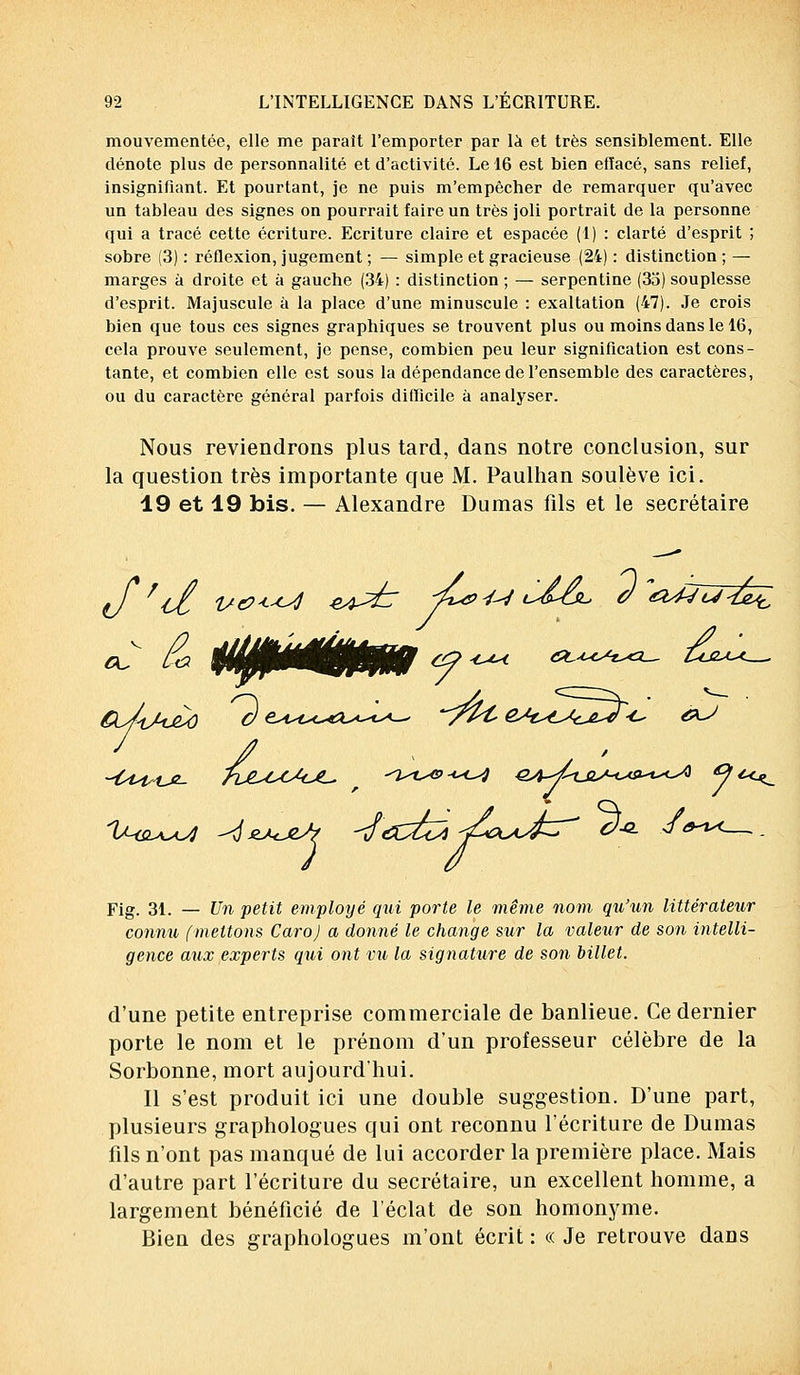 92 L'INTELLIGENCE DANS L'ÉCRITURE.
mouvementée, elle me paraît l'emporter par là et très sensiblement. Elle
dénote plus de personnalité et d'activité. Le 16 est bien effacé, sans relief,
insignifiant. Et pourtant, je ne puis m'empêcher de remarquer qu'avec
un tableau des signes on pourrait faire un très joli portrait de la personne
qui a tracé cette écriture. Ecriture claire et espacée (1) : clarté d'esprit ;
sobre (3) : réflexion, jugement ; — simple et gracieuse (24) : distinction ; —
marges à droite et à gauche (34) : distinction ; — serpentine (35) souplesse
d'esprit. Majuscule à la place d'une minuscule : exaltation (47). Je crois
bien que tous ces signes graphiques se trouvent plus ou moins dans le 16,
cela prouve seulement, je pense, combien peu leur signification est cons-
tante, et combien elle est sous la dépendance de l'ensemble des caractères,
ou du caractère général parfois difficile à analyser.
Nous reviendrons plus tard, dans notre conclusion, sur
la question très importante que M. Paulhan soulève ici.
19 et 19 bis. — Alexandre Dumas fils et le secrétaire
S'il vous est possible d'assister
à la qui aura lieu
après demain Mercredi à
une heure, nous espérons que
vous serez satisfait de son
Fig. 31. — Un petit employé qui porte le même nom qu'un littérateur
connu (mettons Caro) a donné le change sur la valeur de son intelli-
gence aux experts qui ont vu la signature de son billet.
d'une petite entreprise commerciale de banlieue. Ce dernier
porte le nom et le prénom d'un professeur célèbre de la
Sorbonne, mort aujourd'hui.
Il s'est produit ici une double suggestion. D'une part,
plusieurs graphologues qui ont reconnu l'écriture de Dumas
fils n'ont pas manqué de lui accorder la première place. Mais
d'autre part l'écriture du secrétaire, un excellent homme, a
largement bénéficié de l'éclat de son homonyme.
Bien des graphologues m'ont écrit : « Je retrouve dans